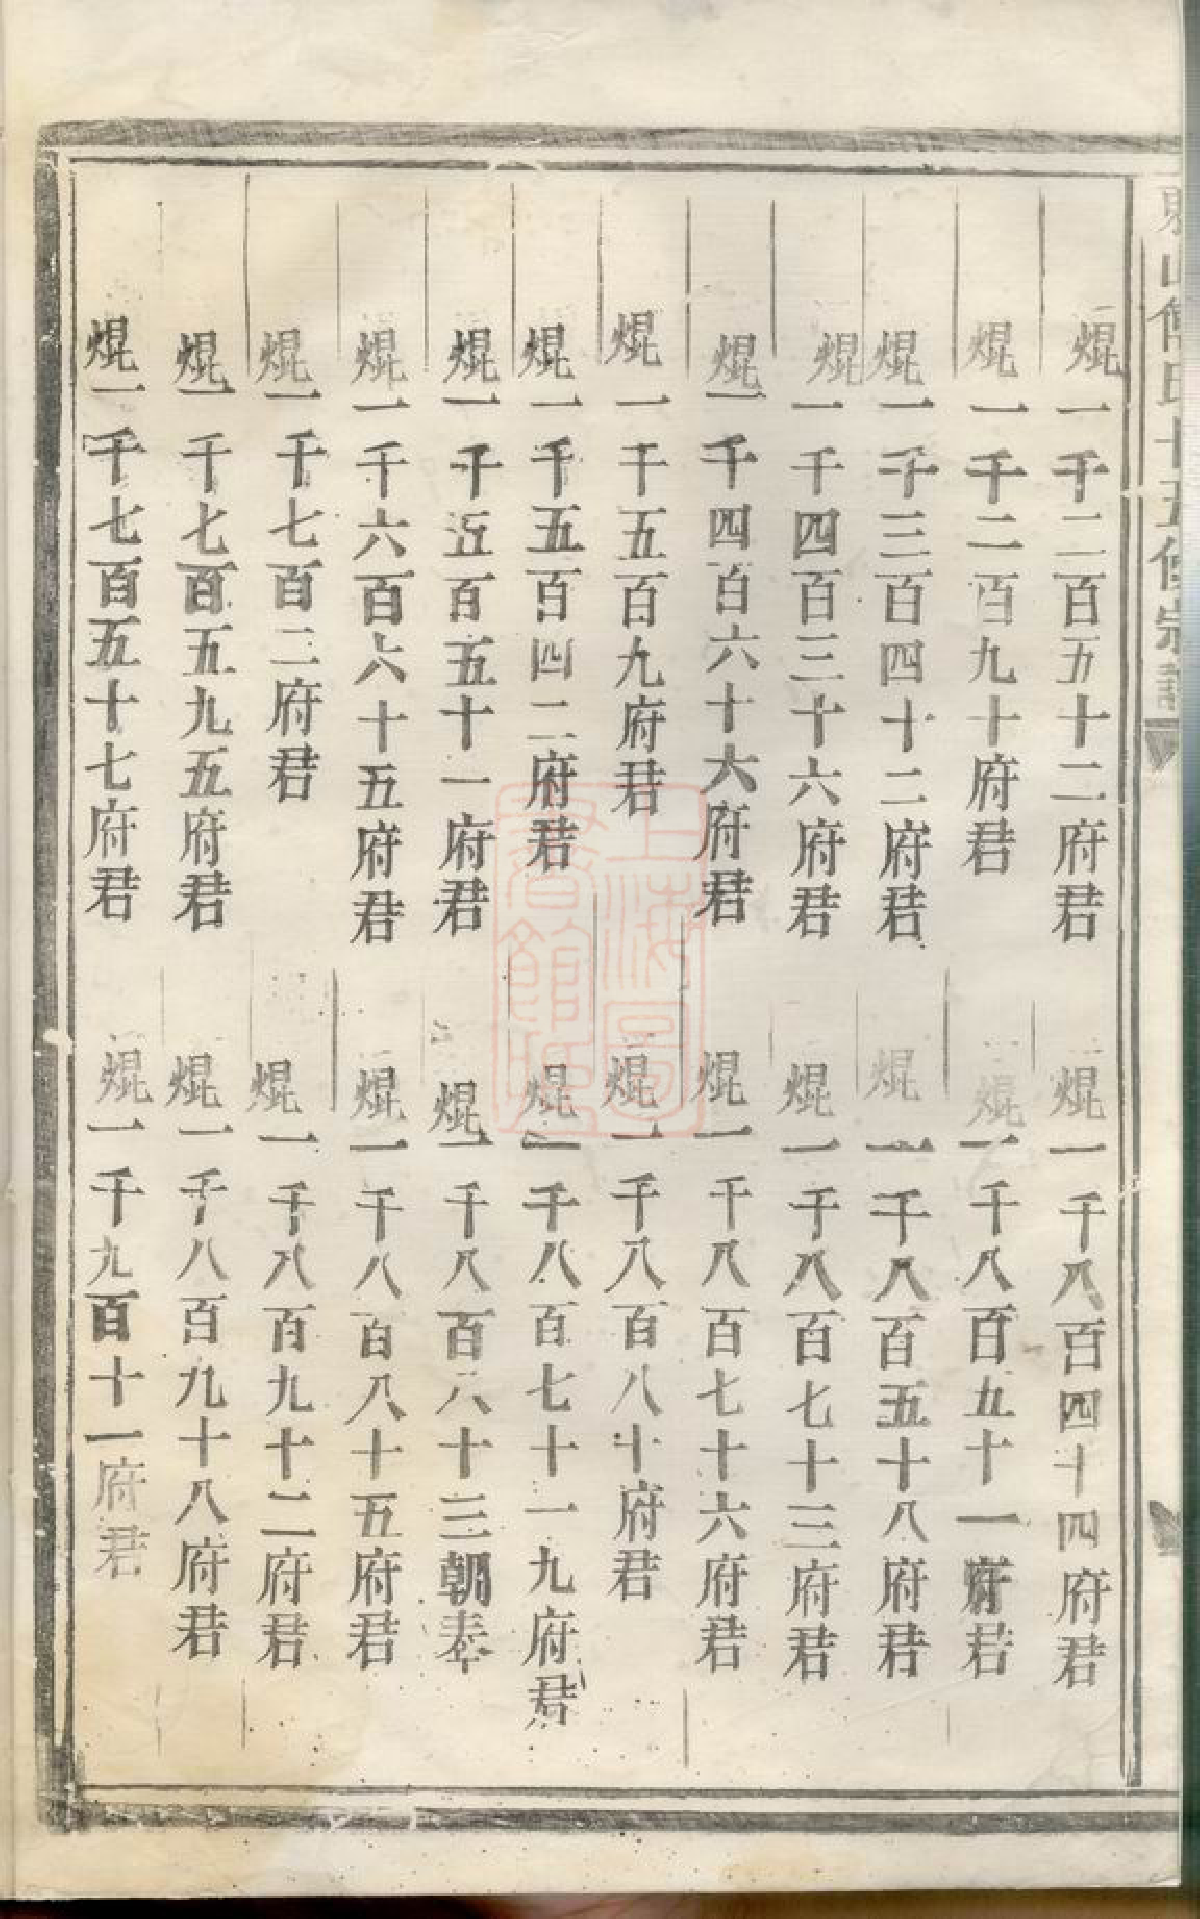 山氏十五修宗譜
焜一千二百五十二府君
焜一千二百九十府君
焜一千三百四十二府君
焜一千四百三十六府君
焜一千四百六十六府君
焜一千五百九府君
焜一千五百四二府君
焜一千五百五十一府君
焜一千六百六十五府君
焜一千七百二府君
焜一千七百五九五府君
焜一千七百五十七府君
焜一千八百四十四府君
焜一千八百五十一府君
焜一千八百五十八府君
焜一千八百七十三府君
焜一千八百七十六府君
焜一千八百八十府君
焜一千八百七十一九府君
焜一千八百八十三朝奉
焜一千八百八十五府君
焜一千八百九十二府君
焜一千八百九十八府君
焜一千九百十一府君
上海圖
書館藏